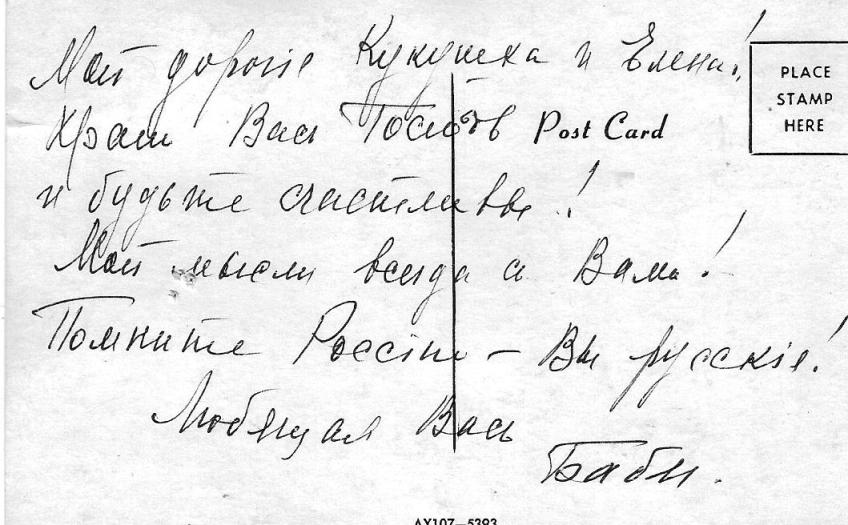 Мои дорогіе Кукушка и Елена!
Храни Вась Господь
Post Card
PLACE
STAMP
HERE
и будьте счастливы!
Мои мысли всегда с Вами!
Помните Россію — Вы русскіе!
Любящая Вась
Баби.
AX107—5393